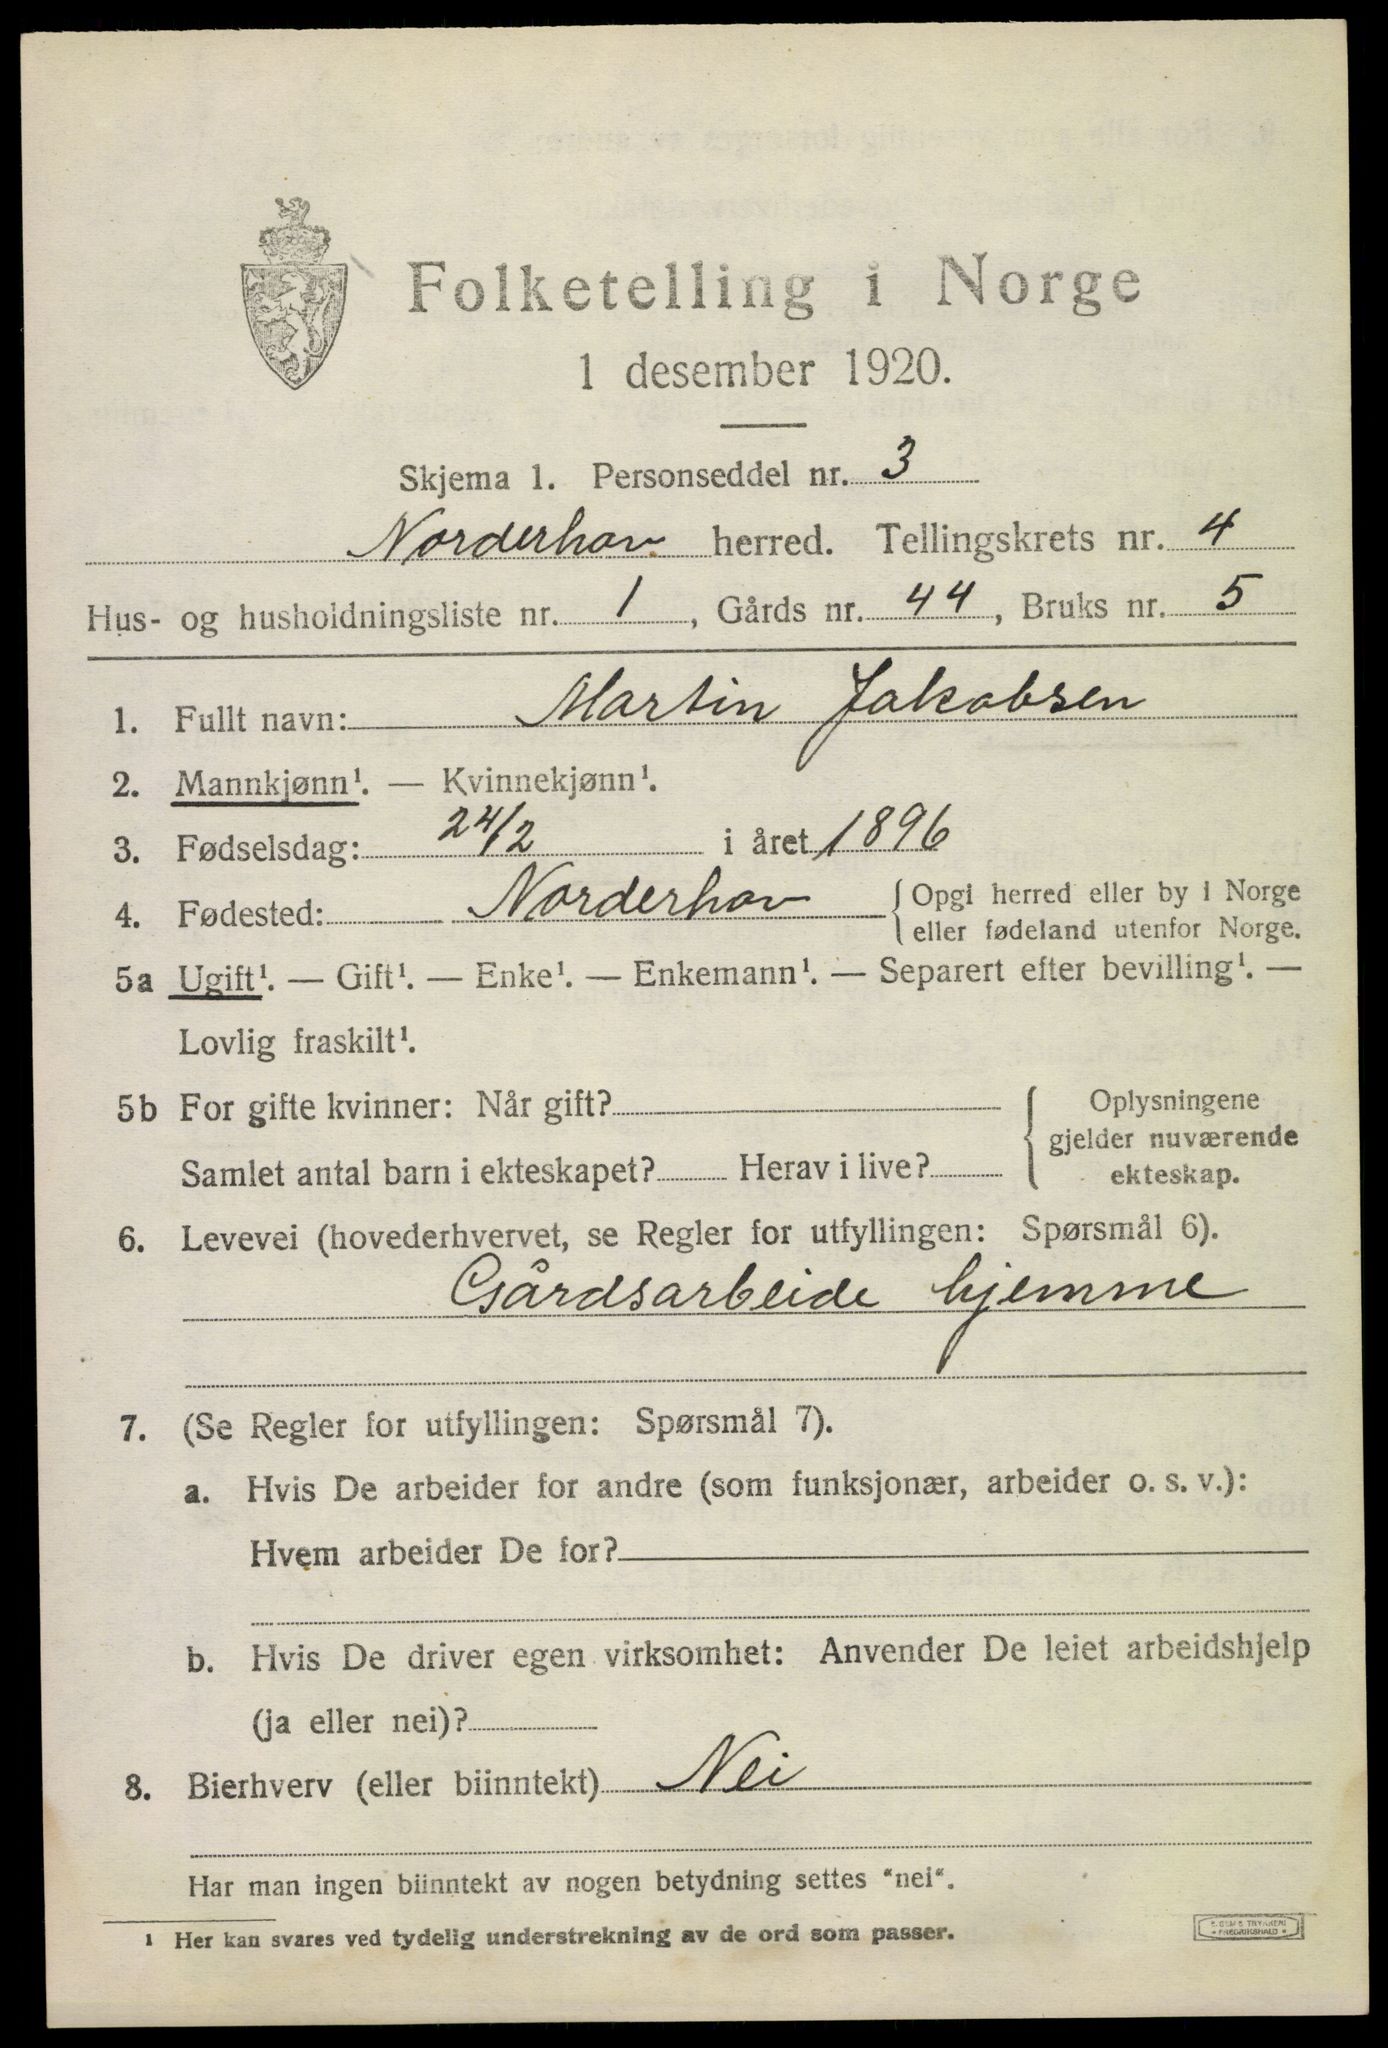 Folketelling i Norge
1 desember 1920.
Skjema 1. Personseddel nr. 3
Norderhov herred. Tellingskrets nr. 4
Hus- og husholdningsliste nr. 1, Gårds nr. 44, Bruks nr. 5
1. Fullt navn: Martin Jakobsen
2. Mannkjønn¹. — Kvinnekjønn¹.
3. Fødselsdag: 24/2 i året 1896
4. Fødested: Norderhov { Opgi herred eller by i Norge
eller fødeland utenfor Norge.
5a Ugift¹. — Gift¹. — Enke¹. — Enkemann¹. — Separert efter bevilling¹. —
Lovlig fraskilt¹.
5b For gifte kvinner: Når gift?
Samlet antal barn i ekteskapet? Herav i live?
{ Oplysningene
gjelder nuværende
ekteskap.
6. Levevei (hovederhvervet, se Regler for utfyllingen: Spørsmål 6).
Gårdsarbeide hjemme
7. (Se Regler for utfyllingen: Spørsmål 7).
a. Hvis De arbeider for andre (som funksjonær, arbeider o. s. v.):
Hvem arbeider De for?
b. Hvis De driver egen virksomhet: Anvender De leiet arbeidshjelp
(ja eller nei)?
8. Bierhverv (eller biinntekt) Nei
Har man ingen biinntekt av nogen betydning settes "nei".
¹ Her kan svares ved tydelig understrekning av de ord som passer.
TRYKKERI
FREDRIKSHALD